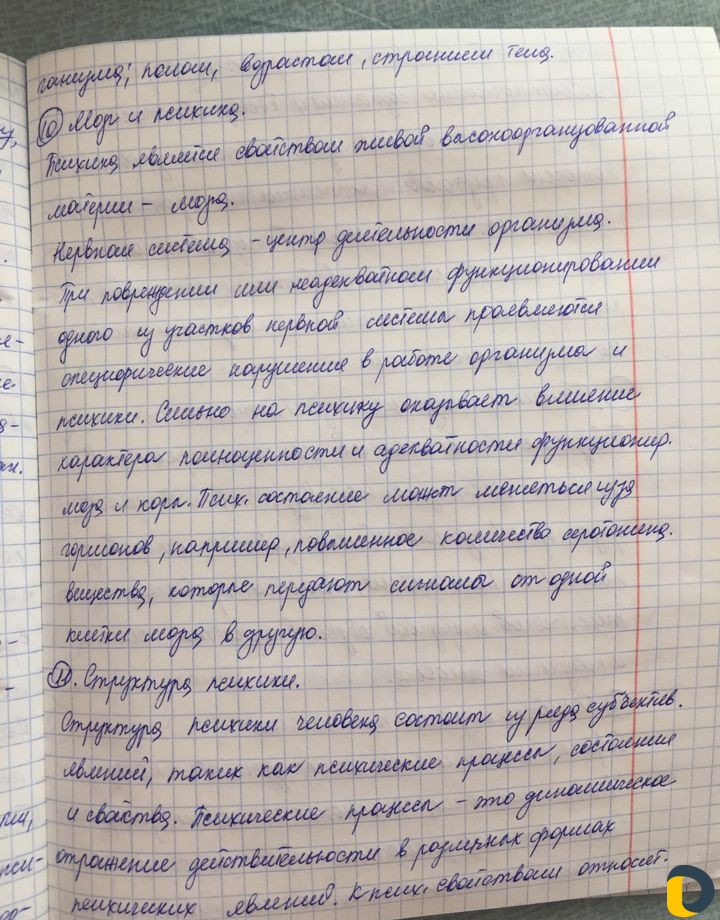 ганизма; полом, возрастом, строением тела.
10 Мозг и психика.
Психика является свойством живой высокоорганизованной
материи – мозга.
Нервная система – центр деятельности организма.
При повреждении или неадекватном функционировании
одного из участков нервной системы проявляются
специфические нарушение в работе организма и
психики. Сильно на психику оказывает влияние
характера полноценности и адекватности функционир.
мозга и коры. Псих. состояние может меняться из за
гормонов, например, повышенное количество серотонина.
вещества, которые передают сигналы от одной
клетки мозга в другую.
11. Структура психики.
Структура психики человека состоит из ряда субъектив.
явлений, таких как психические процессы, состояние
и свойства. Психические процессы – это динамическое
отражение действительности в различных формах
психических явлений. К псих. свойствам относят.